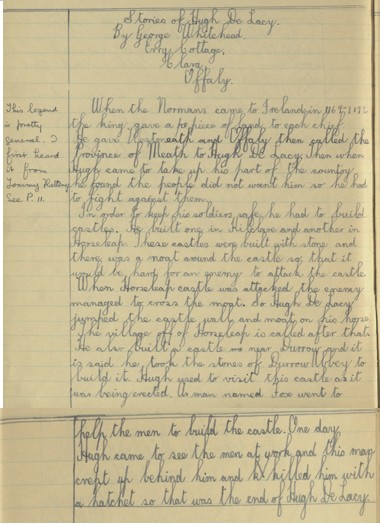 Stories of Hugh De Lacy.
By George Whitehead.
Erry Cottage,
Clara,
Offaly.
This legend
is pretty
general. I
first heard
it from
See P. 11.
When the Normans came to Ireland in
the king gave a piece of land to each chief.
He gave Westmeath and Offaly then called the
Province of Meath to Hugh De Lacy. Then when
Hugh came to take up his part of the country
he found the people did not want him so he had
to fight against them.
In order to keep his soldiers safe he had to build
castles. He built one in and another in
Horseleap. These castles were built with stone and
there was a moat around the castle so that it
would be hard for an enemy to attack the castle
When Horseleap castle was attacked the enemy
managed to cross the moat. So Hugh De Lacy
jumped the castle wall and moat on his horse.
The village of Horseleap is called after that.
He also built a castle near Durrow and it
is said he took the stones of Durrow Abbey to
build it. Hugh used to visit this castle as it
was being erected. A man named Foxe went to
help the men to build the castle. One day
Hugh came to see the men at work and this man
crept up behind him and killed him with
a hatchet so that was the end of Hugh De Lacy.